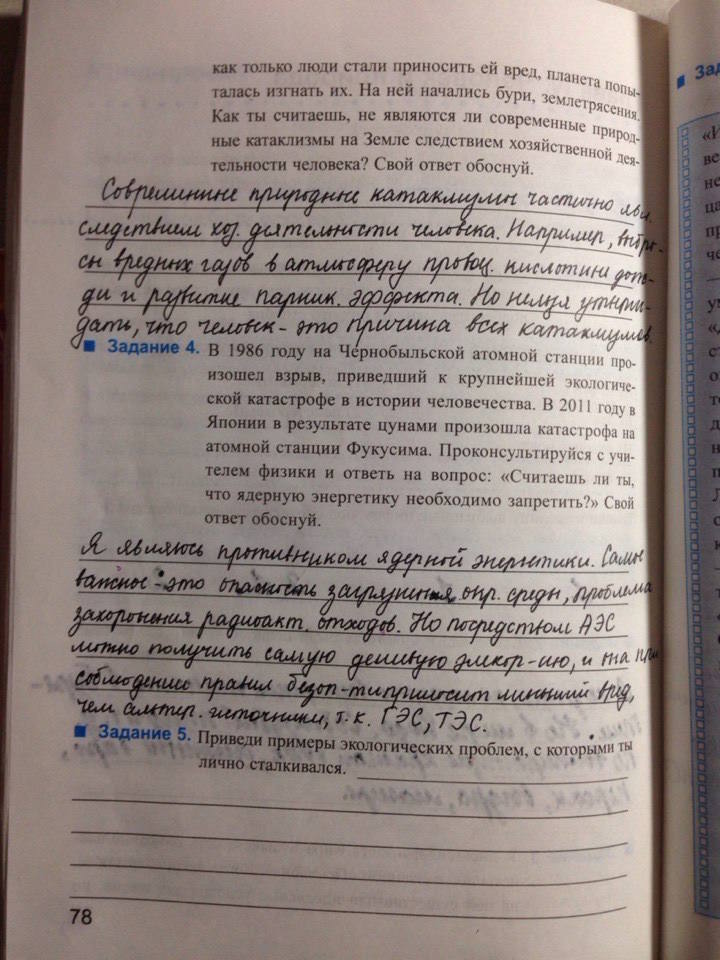 как только люди стали приносить ей вред, планета попы-
талась изгнать их. На ней начались бури, землетрясения.
Как ты считаешь, не являются ли современные природ-
ные катаклизмы на Земле следствием хозяйственной дея-
тельности человека? Свой ответ обоснуй.
Современные природные катаклизмы частично явл.
следствием хоз. деятельности человека. Например, выбро-
сы вредных газов в атмосферу провоц. кислотные дож-
ди и развитие парник. эффекта. Но нельзя утверж-
дать, что человек - это причина всех катаклизмов.
Задание 4. В 1986 году на Чернобыльской атомной станции про-
изошел взрыв, приведший к крупнейшей экологиче-
ской катастрофе в истории человечества. В 2011 году в
Японии в результате цунами произошла катастрофа на
атомной станции Фукусима. Проконсультируйся с учи-
телем физики и ответь на вопрос: «Считаешь ли ты,
что ядерную энергетику необходимо запретить?» Свой
ответ обоснуй.
Я являюсь противником ядерной энергетики. Самое
важное - это опасность загрязнения окр. среды, проблема
захоронения радиоакт. отходов. Но посредством АЭС
можно получить самую дешевую энергию, и она при
соблюдении правил безоп-ти приносит меньший вред,
чем альтер. источники, т.к. ГЭС, ТЭС.
Задание 5. Приведи примеры экологических проблем, с которыми ты
лично сталкивался.
78
За